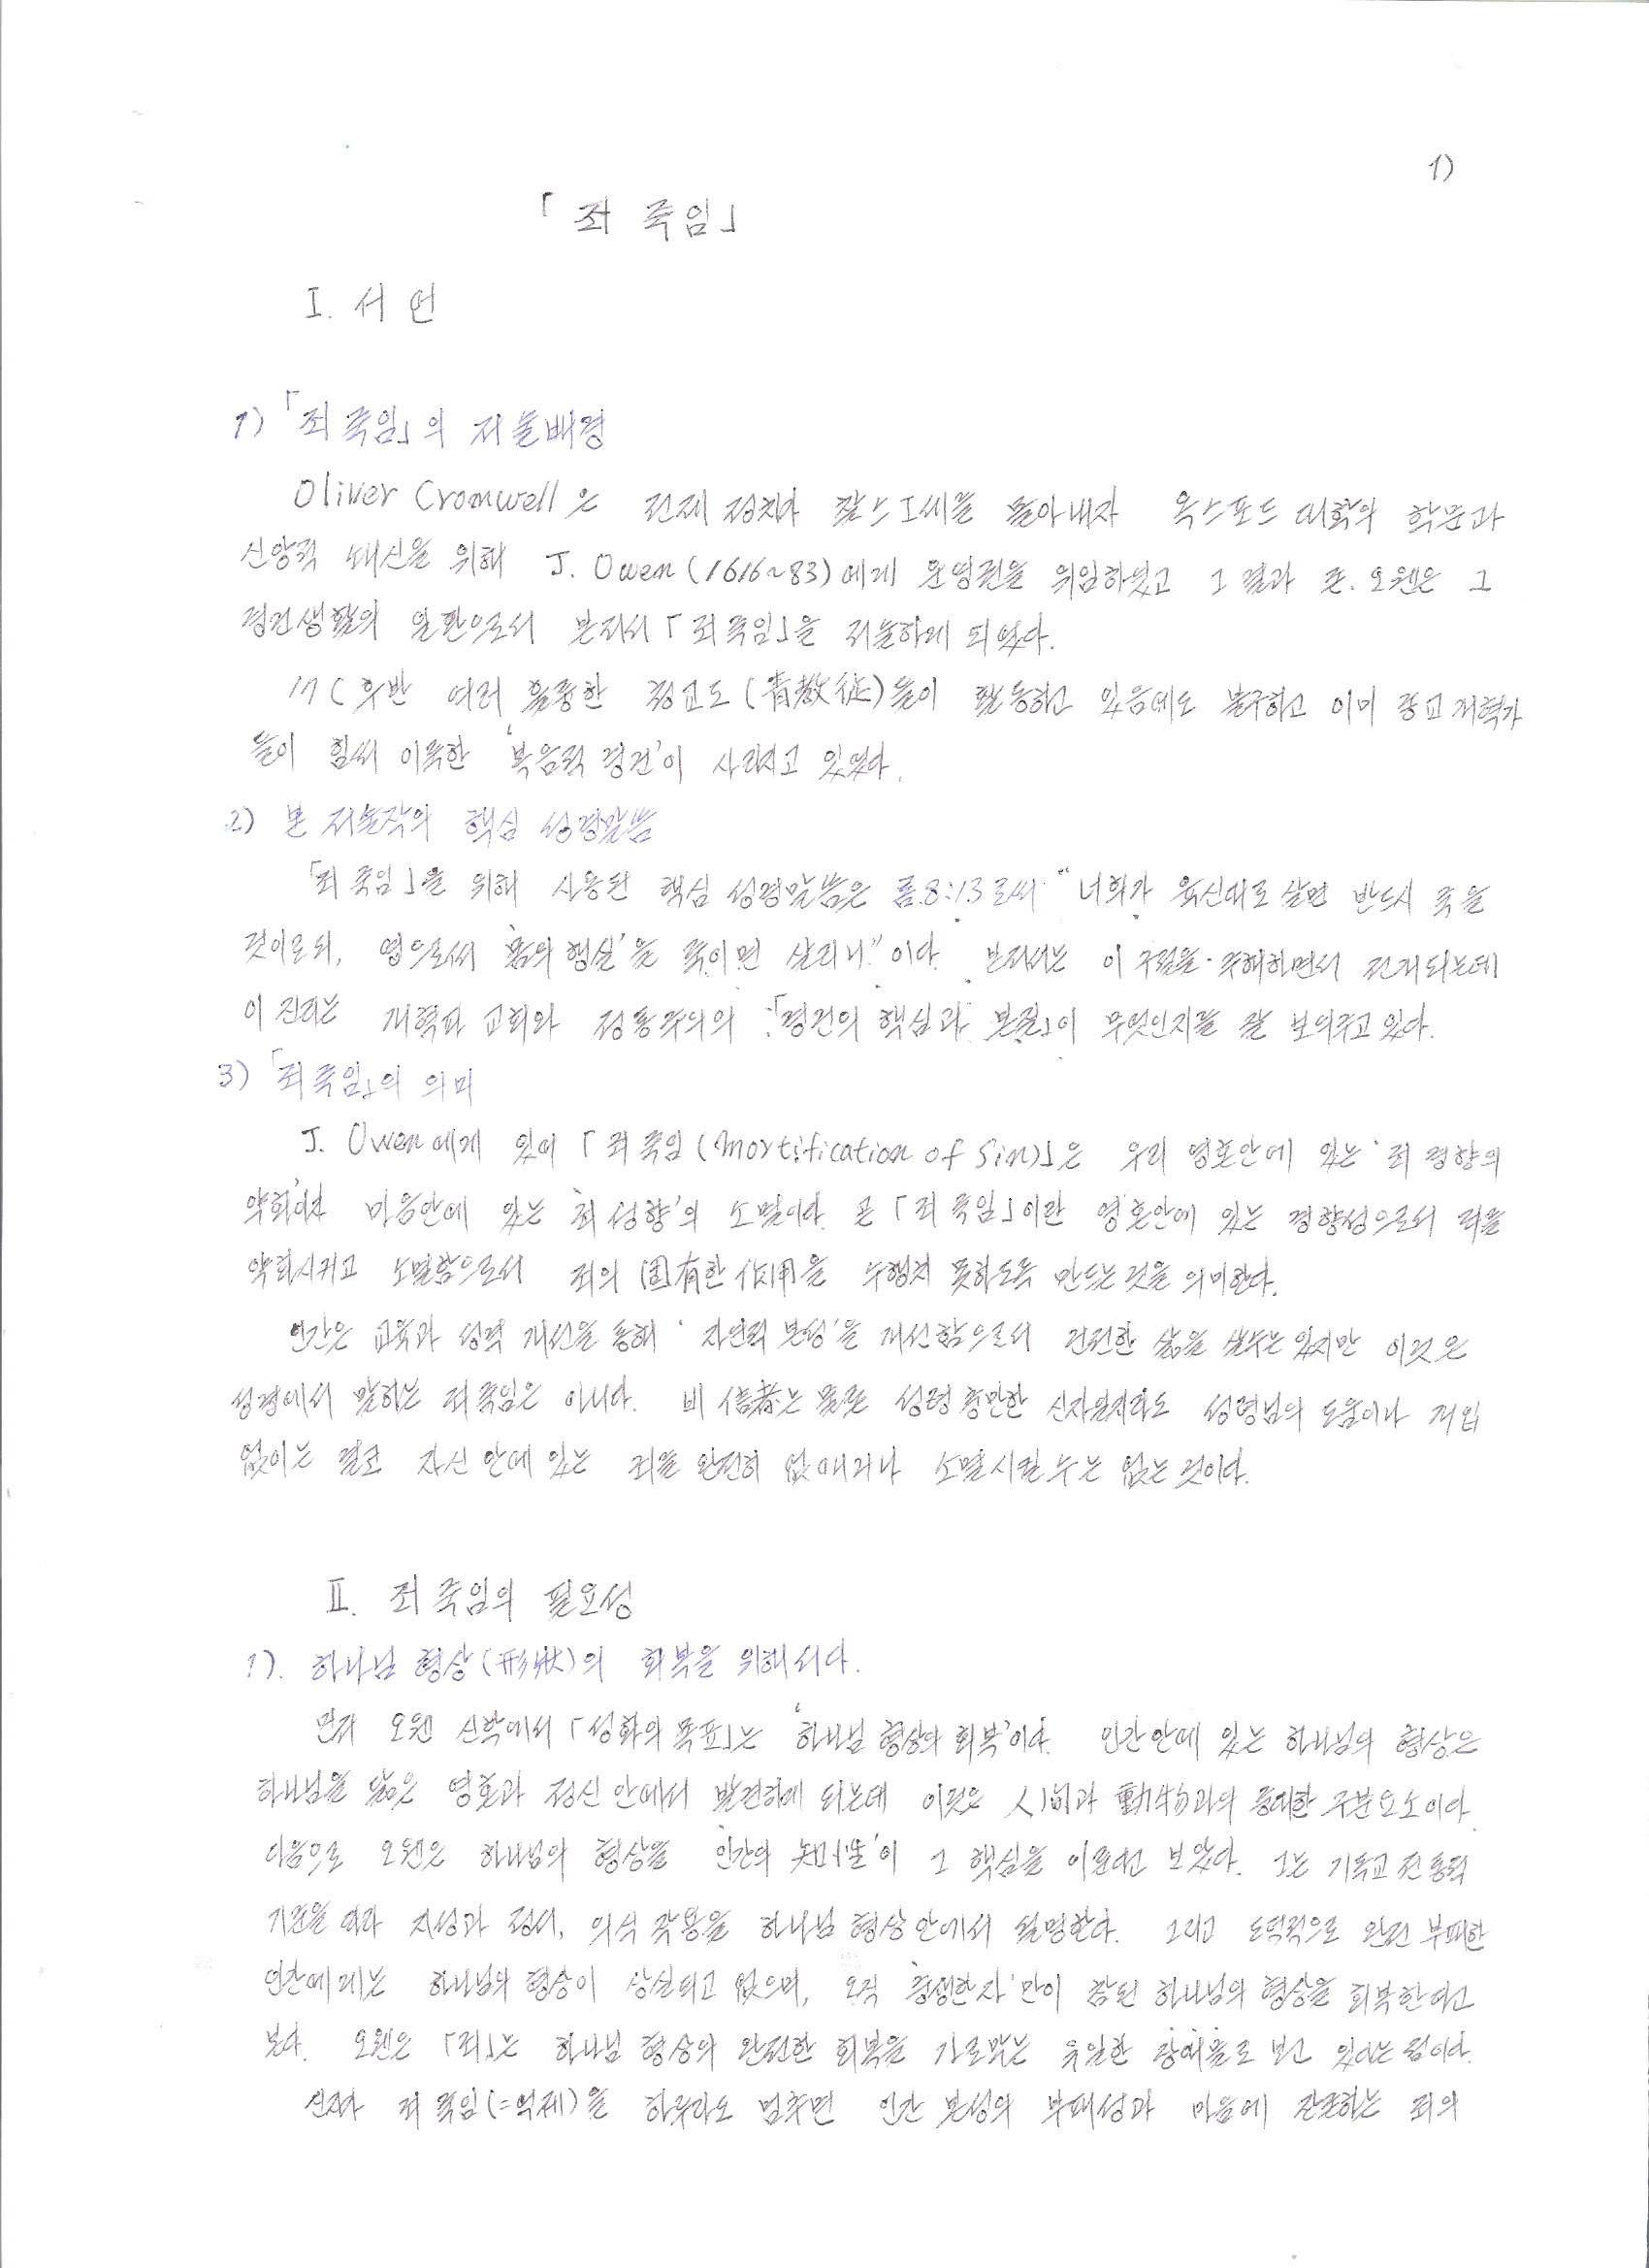 1)
「죄 죽임」
I. 서 언
1) 「죄 죽임」의 저술배경
Oliver Cromwell은 전제 정치가 찰스 I세를 몰아내자 옥스포드 대학의 학문과
신앙적 쇄신을 위해 J. Owen(1616~83)에게 운영권을 위임하였고 그 결과 존. 오웬은 그
경건생활의 일환으로서 본저서 「죄 죽임」을 저술하게 되었다.
17C 후반 여러 훌륭한 청교도(青敎徒)들이 활동하고 있음에도 불구하고 이미 종교개혁가
들이 힘써 이룩한 '복음적 경건'이 사라지고 있었다.
2) 본 저술작의 핵심 성경말씀
「죄 죽임」을 위해 사용된 핵심 성경말씀은 롬.8:13로써 "너희가 육신대로 살면 반드시 죽을
것이로되, 영으로써 '몸의 행실'을 죽이면 살리니"이다. 본저서는 이 구절을 주해하면서 전개되는데
이 진리는 개혁파 교회와 정통주의의 「경건의 핵심과 본질」이 무엇인지를 잘 보여주고 있다.
3) 「죄 죽임」의 의미
J. Owen에게 있어 「죄 죽임 (Mortification of Sin)」은 우리 영혼안에 있는 '죄 경향의
약화'이자 마음안에 있는 '죄 성향'의 소멸이다. 곧 「죄 죽임」이란 영혼안에 있는 경향성으로서 죄를
약화시키고 소멸함으로서 죄의 固有한 作用을 수행치 못하도록 만드는 것을 의미한다.
인간은 교육과 성격 개선을 통해 '자연적 본성'을 개선함으로서 건전한 삶을 살수는 있지만 이것은
성경에서 말하는 죄 죽임은 아니다. 비 信者는 물론 성령 충만한 신자일지라도 성령님의 도움이나 개입
없이는 결코 자신 안에 있는 죄를 완전히 없애거나 소멸시킬 수는 없는 것이다.
II. 죄 죽임의 필요성
1). 하나님 형상(形狀)의 회복을 위해서다.
먼저 오웬 신학에서 「성화의 목표」는 '하나님 형상의 회복'이다. 인간 안에 있는 하나님의 형상은
하나님을 닮은 영혼과 정신 안에서 발견하게 되는데 이것은 人間과 動物과의 중대한 구분요소이다.
다음으로 오웬은 하나님의 형상을 '인간의 知性'이 그 핵심을 이룬다고 보았다. 그는 기독교 전통적
기준을 따라 지성과 정서, 의식 작용을 하나님 형상 안에서 설명한다. 그리고 도덕적으로 완전 부패한
인간에게는 하나님의 형상이 상실되고 없으며, 오직 '중생한자'만이 참된 하나님의 형상을 회복한다고
본다. 오웬은 「죄」는 하나님 형상의 완전한 회복을 가로막는 유일한 장애물로 보고 있다는 점이다.
신자가 죄 죽임(=억제)을 하루라도 멈추면 인간 본성의 부패성과 마음에 잔존하는 죄의